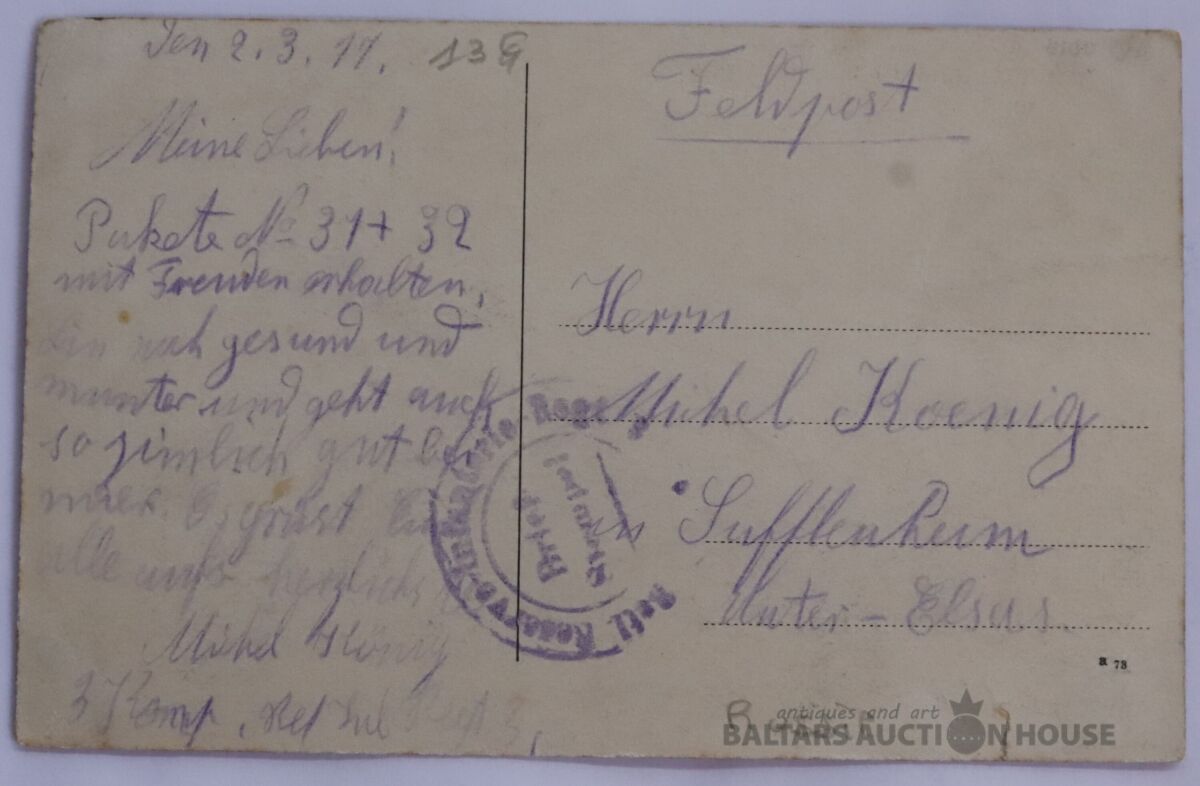 Den 2.3.17. 13 G
Meine Lieben!
Pakete No 31 + 32
mit Freuden erhalten,
bin noch gesund und
munter und geht auch
so zimlich gut bei
mier. Es grüst Euch
alle aufs herzlichste
Michel König
3 Komp. Res Inf Regt 3,
Feldpost
Herrn
Michel Koenig
in Sufflenheim
Unter-Elsas
Reserve-Infanterie Regt
Brief
Stempel
a 73
antiques and art
BALTARS AUCTION HOUSE